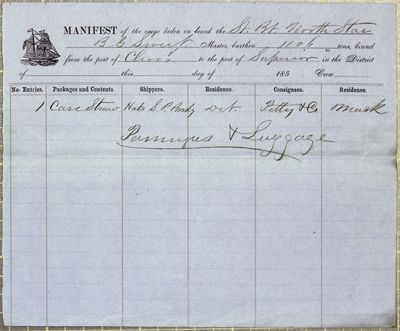 MANIFEST of the cargo laden on board the St. Bt. North Star
B. G. Sweet Master, burthen 1106 tons, bound
from the port of to the port of Superior in the District
of this day of 185 Crew
No. Entries. Packages and Contents. Shippers. Residence. Consignees. Residence.
1 Case Straw Hats Det Petty & Co
& Luggage